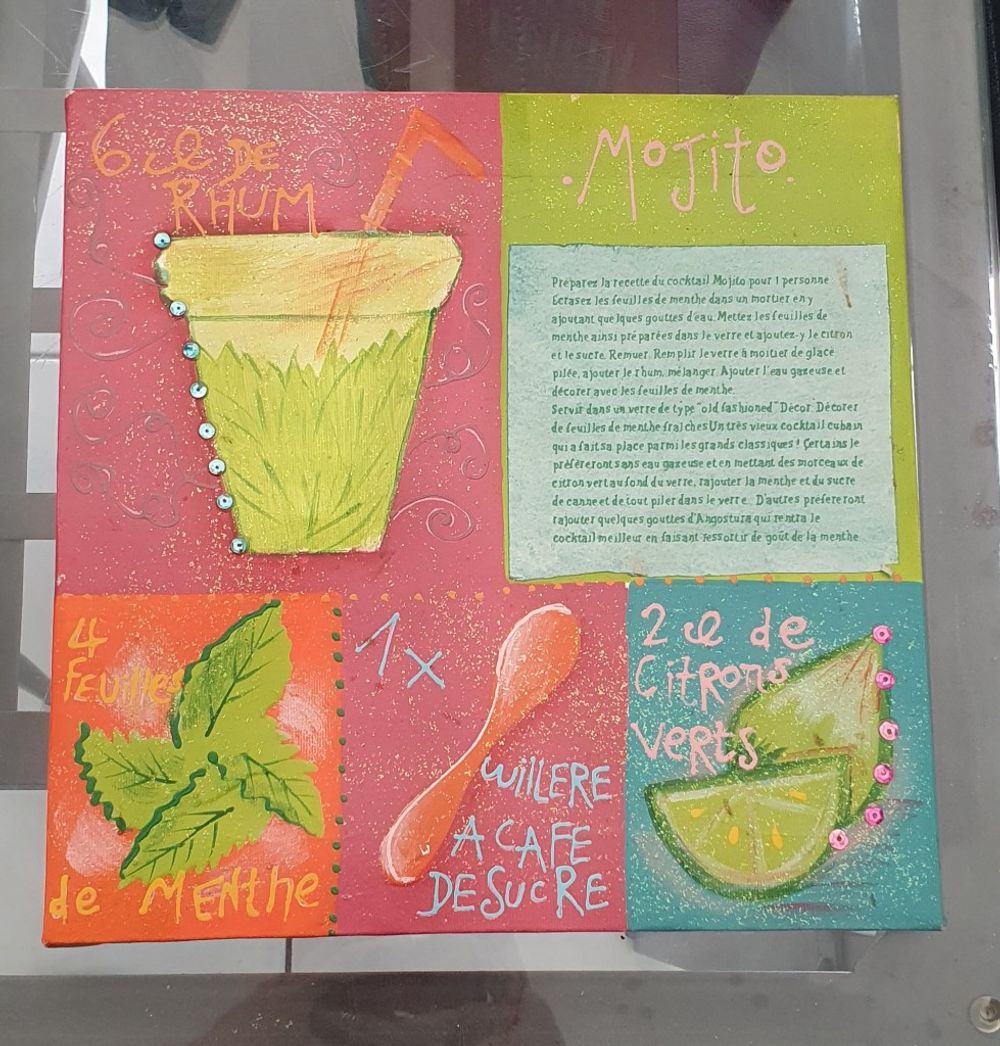 6 cl DE
RHUM
.MOJito.
Préparez la recette du cocktail Mojito pour 1 personne
Ecrasez les feuilles de menthe dans un mortier en y
ajoutant quelques gouttes d'eau. Mettez les feuilles de
menthe ainsi préparées dans le verre et ajoutez-y le citron
et le sucre. Remuer. Remplir le verre à moitier de glace
pilée, ajouter le rhum, mélanger. Ajouter l'eau gazeuse et
décorer avec les feuilles de menthe.
Servir dans un verre de type "old fashioned" Décor: Décorer
de feuilles de menthe fraîches Un très vieux cocktail cubain
qui a fait sa place parmi les grands classiques ! Certains le
préféreront sans eau gazeuse et en mettant des morceaux de
citron vert au fond du verre, rajouter la menthe et du sucre
de canne et de tout piler dans le verre. D'autres préfèreront
rajouter quelques gouttes d'Angostura qui rentra le
cocktail meilleur en faisant ressortir de goût de la menthe
4
FEUilles
de MENthe
1x
WillERE
A CAFE
DE SUCRE
2 cl de
CitRons
VeRts